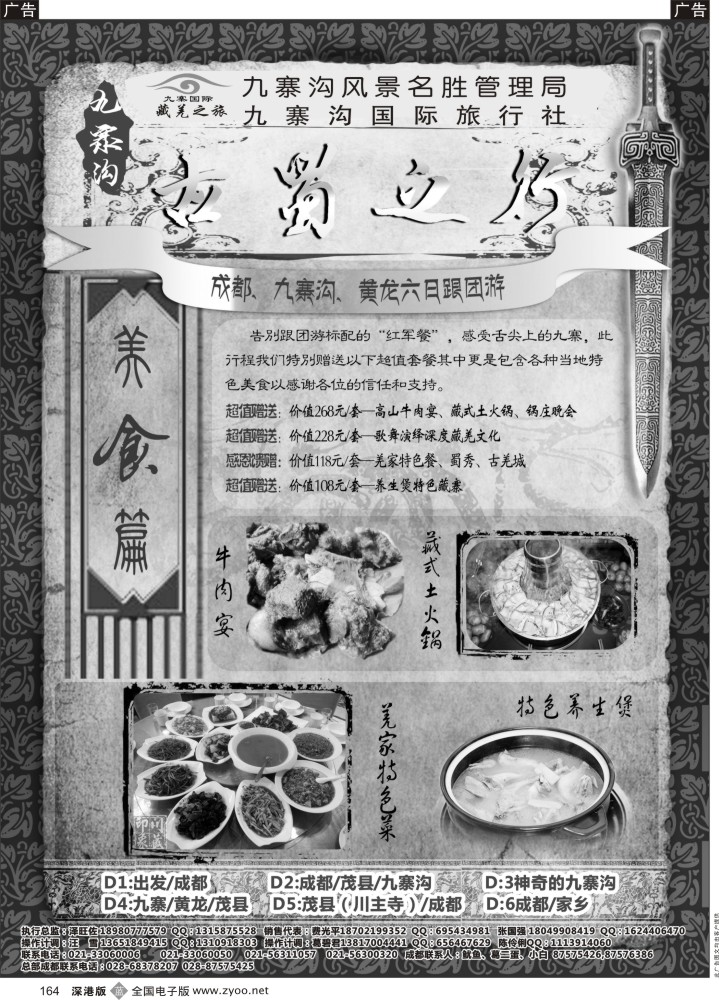 广告
广告
九寨国际
藏羌之旅
九寨沟风景名胜管理局
九寨沟国际旅行社
九寨沟
古蜀之行
成都、九寨沟、黄龙六日跟团游
美食篇
告别跟团游标配的“红军餐”，感受舌尖上的九寨，此
行程我们特别赠送以下超值套餐其中更是包含各种当地特
色美食以感谢各位的信任和支持。
超值赠送：价值268元/套—高山牛肉宴、藏式土火锅、锅庄晚会
超值赠送：价值228元/套—歌舞演绎深度藏羌文化
感恩馈赠：价值118元/套—羌家特色餐、蜀秀、古羌城
超值赠送：价值108元/套—养生煲特色藏寨
牛肉宴
藏式土火锅
羌家特色菜
特色养生煲
D1:出发/成都 D2:成都/茂县/九寨沟 D:3神奇的九寨沟
D4:九寨/黄龙/茂县 D5:茂县（川主寺）/成都 D:6成都/家乡
执行总监:泽旺佐18980777579 QQ:1315875528 销售代表:费光平18702199352 QQ:695434981 张国强:18049908419 QQ:1624406470
操作计调:汪 雪13651849415 QQ:1310918303 操作计调:葛碧君13817004441 QQ:656467629 陈伶俐QQ:1113914060
联系电话:021-33060006 021-33060050 021-56311057 021-56300320 成都联系人:鱿鱼、葛二蛋、小白 87575426,87576386
总部成都联系电话:028-68378207 028-87575425
164 深港版 全国电子版 www.zyoo.net
此广告图文均由客户提供